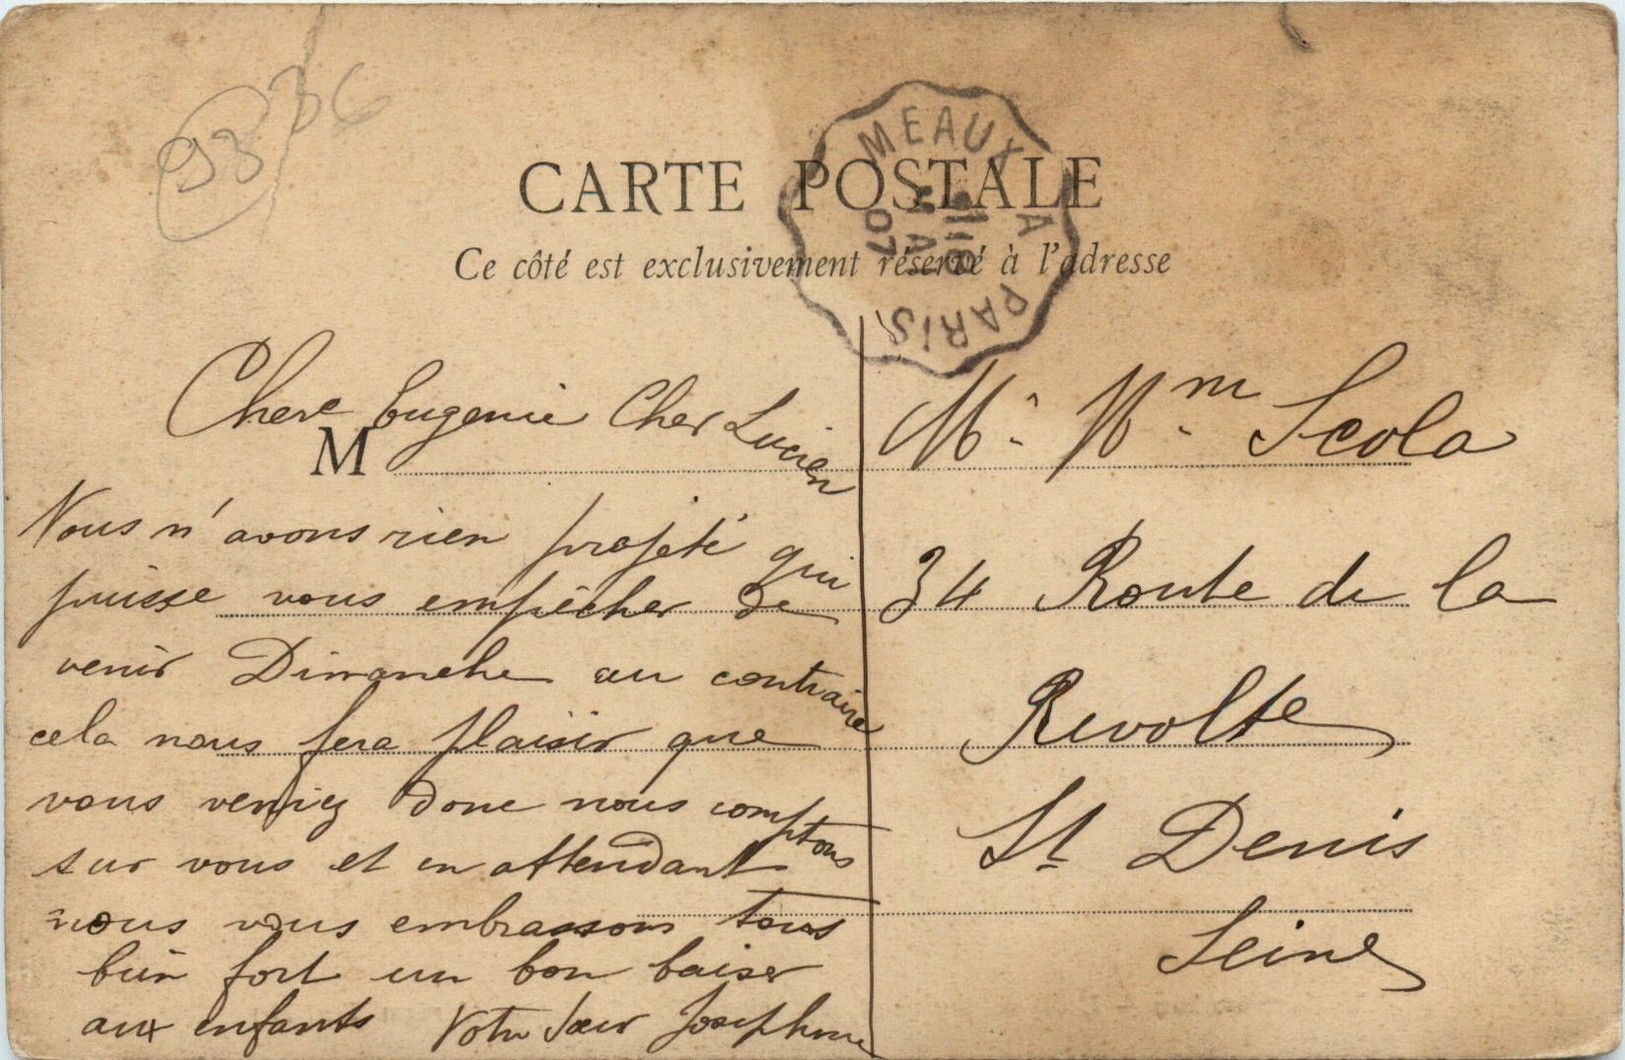 93 36
CARTE POSTALE
Ce côté est exclusivement réservé à l'adresse
MEAUX A PARIS
MAI
07
M
Chere Eugenie Cher Lucien
Nous n'avons rien projeté qui
puisse vous empêcher de
venir Dimanche au contraire
cela nous fera plaisir que
vous veniez donc nous comptons
sur vous et en attendant
nous vous embrassons tous
bien fort un bon baiser
aux enfants Votre Sœur Josephine
Mr. Mm. Scola
34 Route de la
Revolte
St Denis
Seine